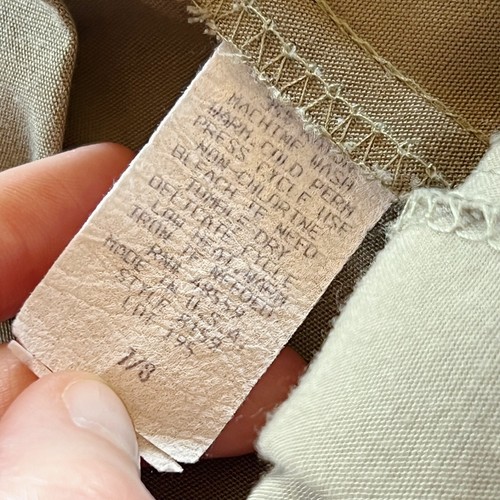 MACHINE WASH
WARM, COLD PERM
PRESS CYCLE USE
NON-CHLORINE
BLEACH IF NEED
TUMBLE DRY
DELICATE CYCLE
LOW HEAT-WARM
IRON IF NEEDED
RN#
MADE IN U.S.A.
STYLE
LOT 195
7/8